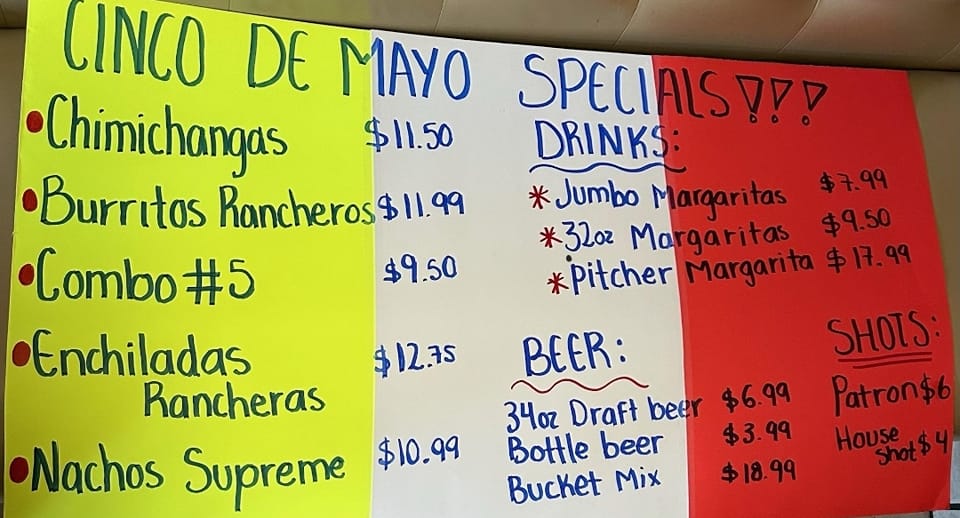 CINCO DE MAYO SPECIALS!!!
•Chimichangas $11.50
•Burritos Rancheros $11.99
•Combo #5 $9.50
•Enchiladas $12.75
Rancheras
•Nachos Supreme $10.99
DRINKS:
*Jumbo Margaritas $7.99
*32oz Margaritas $9.50
*Pitcher Margarita $17.99
BEER:
34oz Draft beer $6.99
Bottle beer $3.99
Bucket Mix $18.99
SHOTS:
Patron $6
House
shot $4